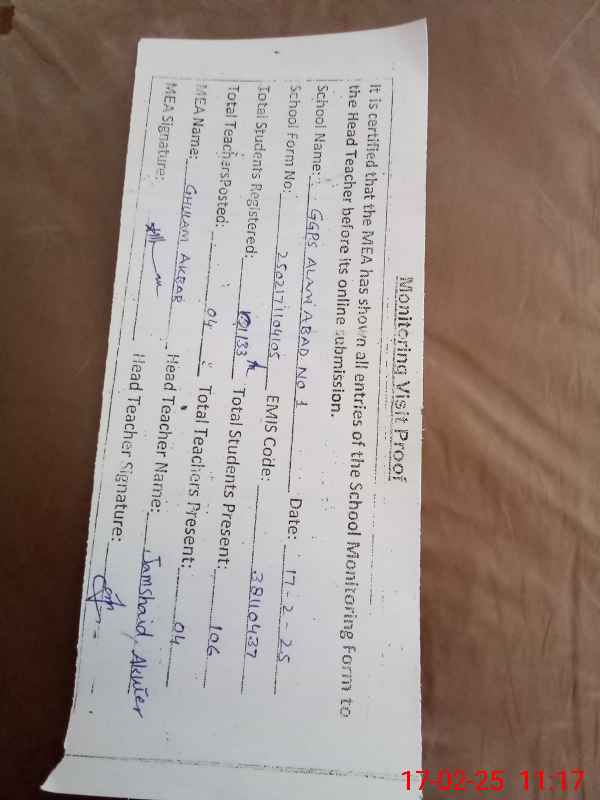 Monitoring Visit Proof
It is certified that the MEA has shown all entries of the School Monitoring Form to
the Head Teacher before its online submission.
School Name: GGPS ALAM ABAD NO 1 Date: 17-2-25
School Form No: 2502171104105 EMIS Code: 38110437
Total Students Registered: 133 Total Students Present: 106
Total Teachers Posted: 04 Total Teachers Present: 04
MEA Name: GHULAM AKBAR Head Teacher Name: Jamshaid Akhter
MEA Signature: Head Teacher Signature:
17-02-25 11:17